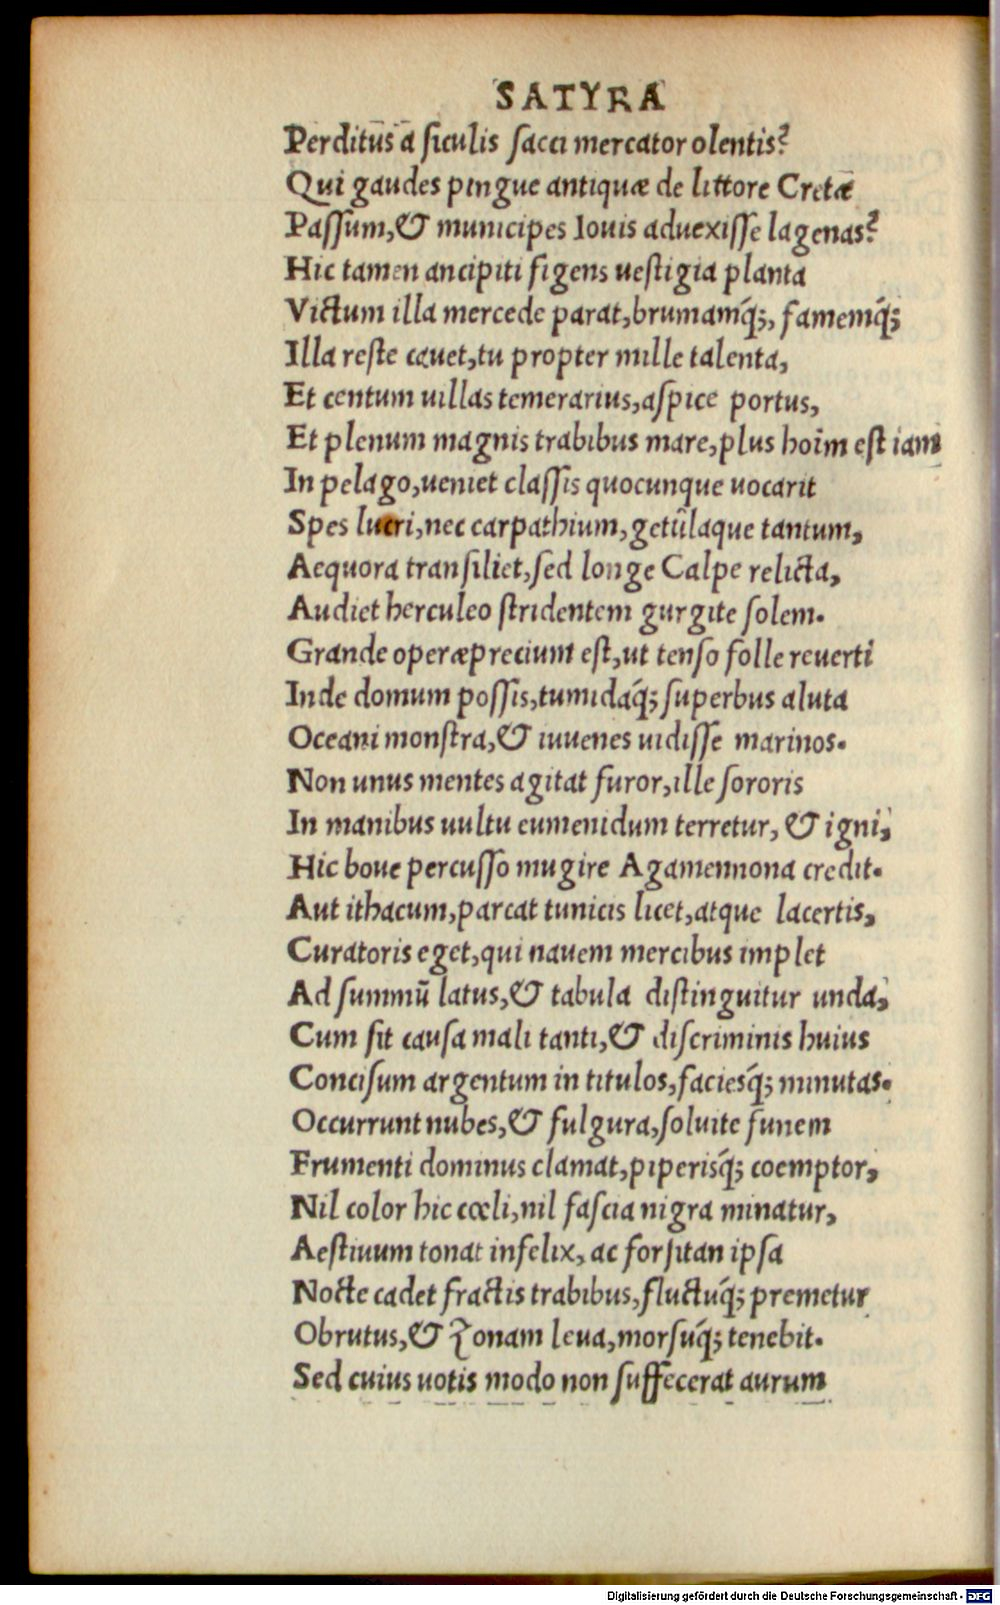 SATYRA
Perditus a siculis sacci mercator olentis?
Qui gaudes pingue antiquæ de littore Cretæ
Passum,& municipes Iouis aduexisse lagenas?
Hic tamen ancipiti figens uestigia planta
Victum illa mercede parat,brumamq́;, famemq́;
Illa reste cauet,tu propter mille talenta,
Et centum uillas temerarius,aspice portus,
Et plenum magnis trabibus mare,plus hoim̄ est iam
In pelago,ueniet classis quocunque uocarit
Spes lucri,nec carpathium,getulaque tantum,
Aequora transiliet,sed longe Calpe relicta,
Audiet herculeo stridentem gurgite solem.
Grande operæprecium est,ut tenso folle reuerti
Inde domum possis,tumidaq́; superbus aluta
Oceani monstra,& iuuenes uidisse marinos.
Non unus mentes agitat furor,ille sororis
In manibus uultu eumenidum terretur, & igni,
Hic boue percusso mugire Agamemnona credit.
Aut ithacum,parcat tunicis licet,atque lacertis,
Curatoris eget,qui nauem mercibus implet
Ad summū latus,& tabula distinguitur unda,
Cum sit causa mali tanti,& discriminis huius
Concisum argentum in titulos,faciesq́; minutas.
Occurrunt nubes,& fulgura,soluite funem
Frumenti dominus clamat,piperisq́; coemptor,
Nil color hic cœli,nil fascia nigra minatur,
Aestiuum tonat infelix, ac forsitan ipsa
Nocte cadet fractis trabibus,fluctuq́; premetur
Obrutus,& zonam leua,morsuq́; tenebit.
Sed cuius uotis modo non suffecerat aurum
Digitalisierung gefördert durch die Deutsche Forschungsgemeinschaft - DFG